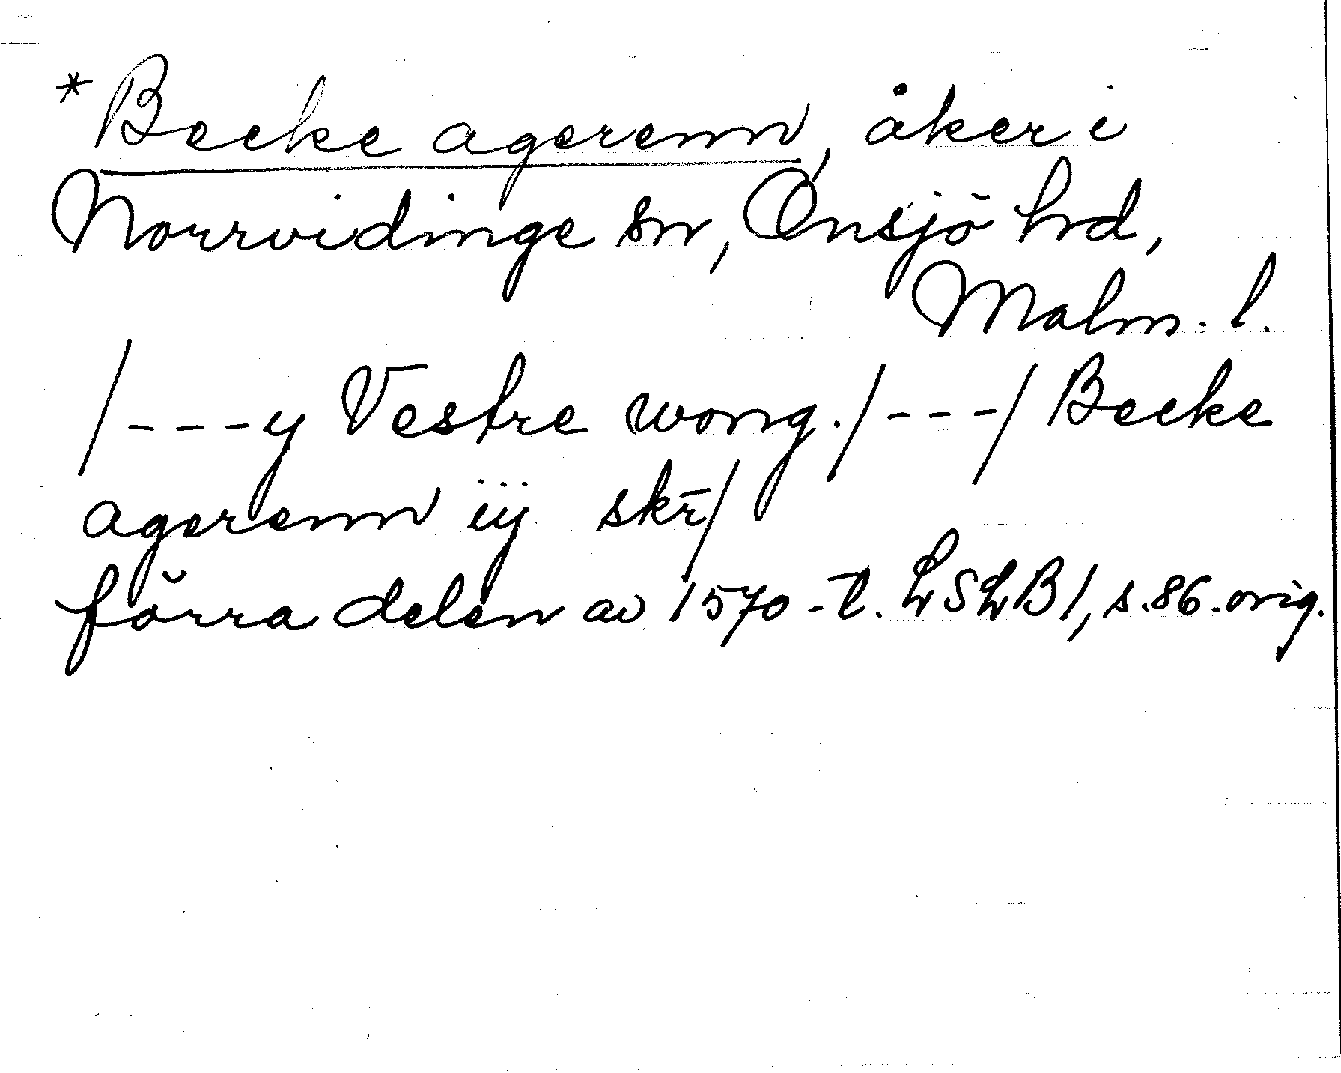 *Becke agerenn, åker i
Norrvidinge sn, Onsjö hrd,
Malm. l.
/---y Vestre wong./---/ Becke
agerenn iij skr̄/
förra delen av 1570-t. LSLB1, s.86. orig.